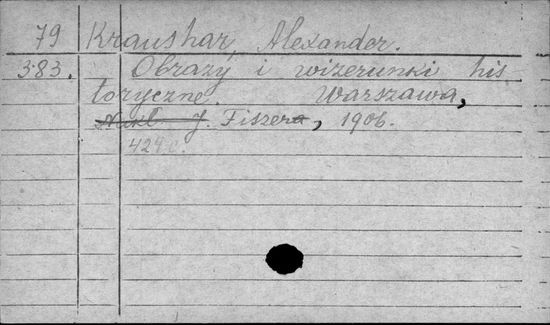 79 Kraushar, Alexander.
383. Obrazy i wizerunki his
toryczne. Warszawa,
Nakł. J. Fiszera, 1906.
429 c.